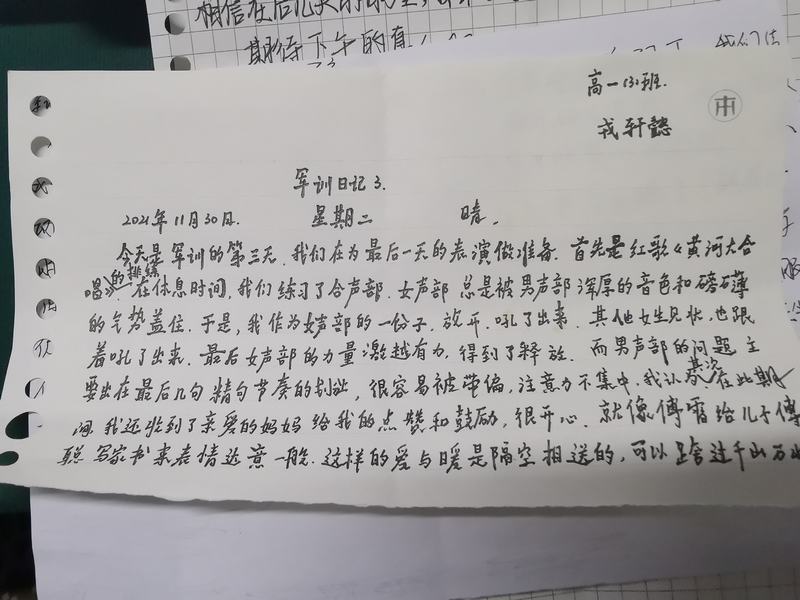 期待下午的
高一(3)班.
戎轩懿
军训日记3.
2021年11月30日. 星期二 晴.
今天是军训的第三天.我们在为最后一天的表演做准备.首先是红歌《黄河大合
唱》的排练 在休息时间,我们练习了合声部.女声部总是被男声部浑厚的音色和磅礴
的气势盖住.于是,我作为女声部的一份子,放开.吼了出来.其他女生见状,也跟
着吼了出来.最后女声部的力量激越有力,得到了释放.而男声部的问题主
要出在最后几句精句节奏的,很容易被带偏,注意力不集中.我认 在此期
间.我还收到了亲爱的妈妈给我的点赞和鼓励,很开心.就像傅雷给儿子傅
聪写家书来表情达意一般.这样的爱与暖是隔空相送的,可以跨过千山万水